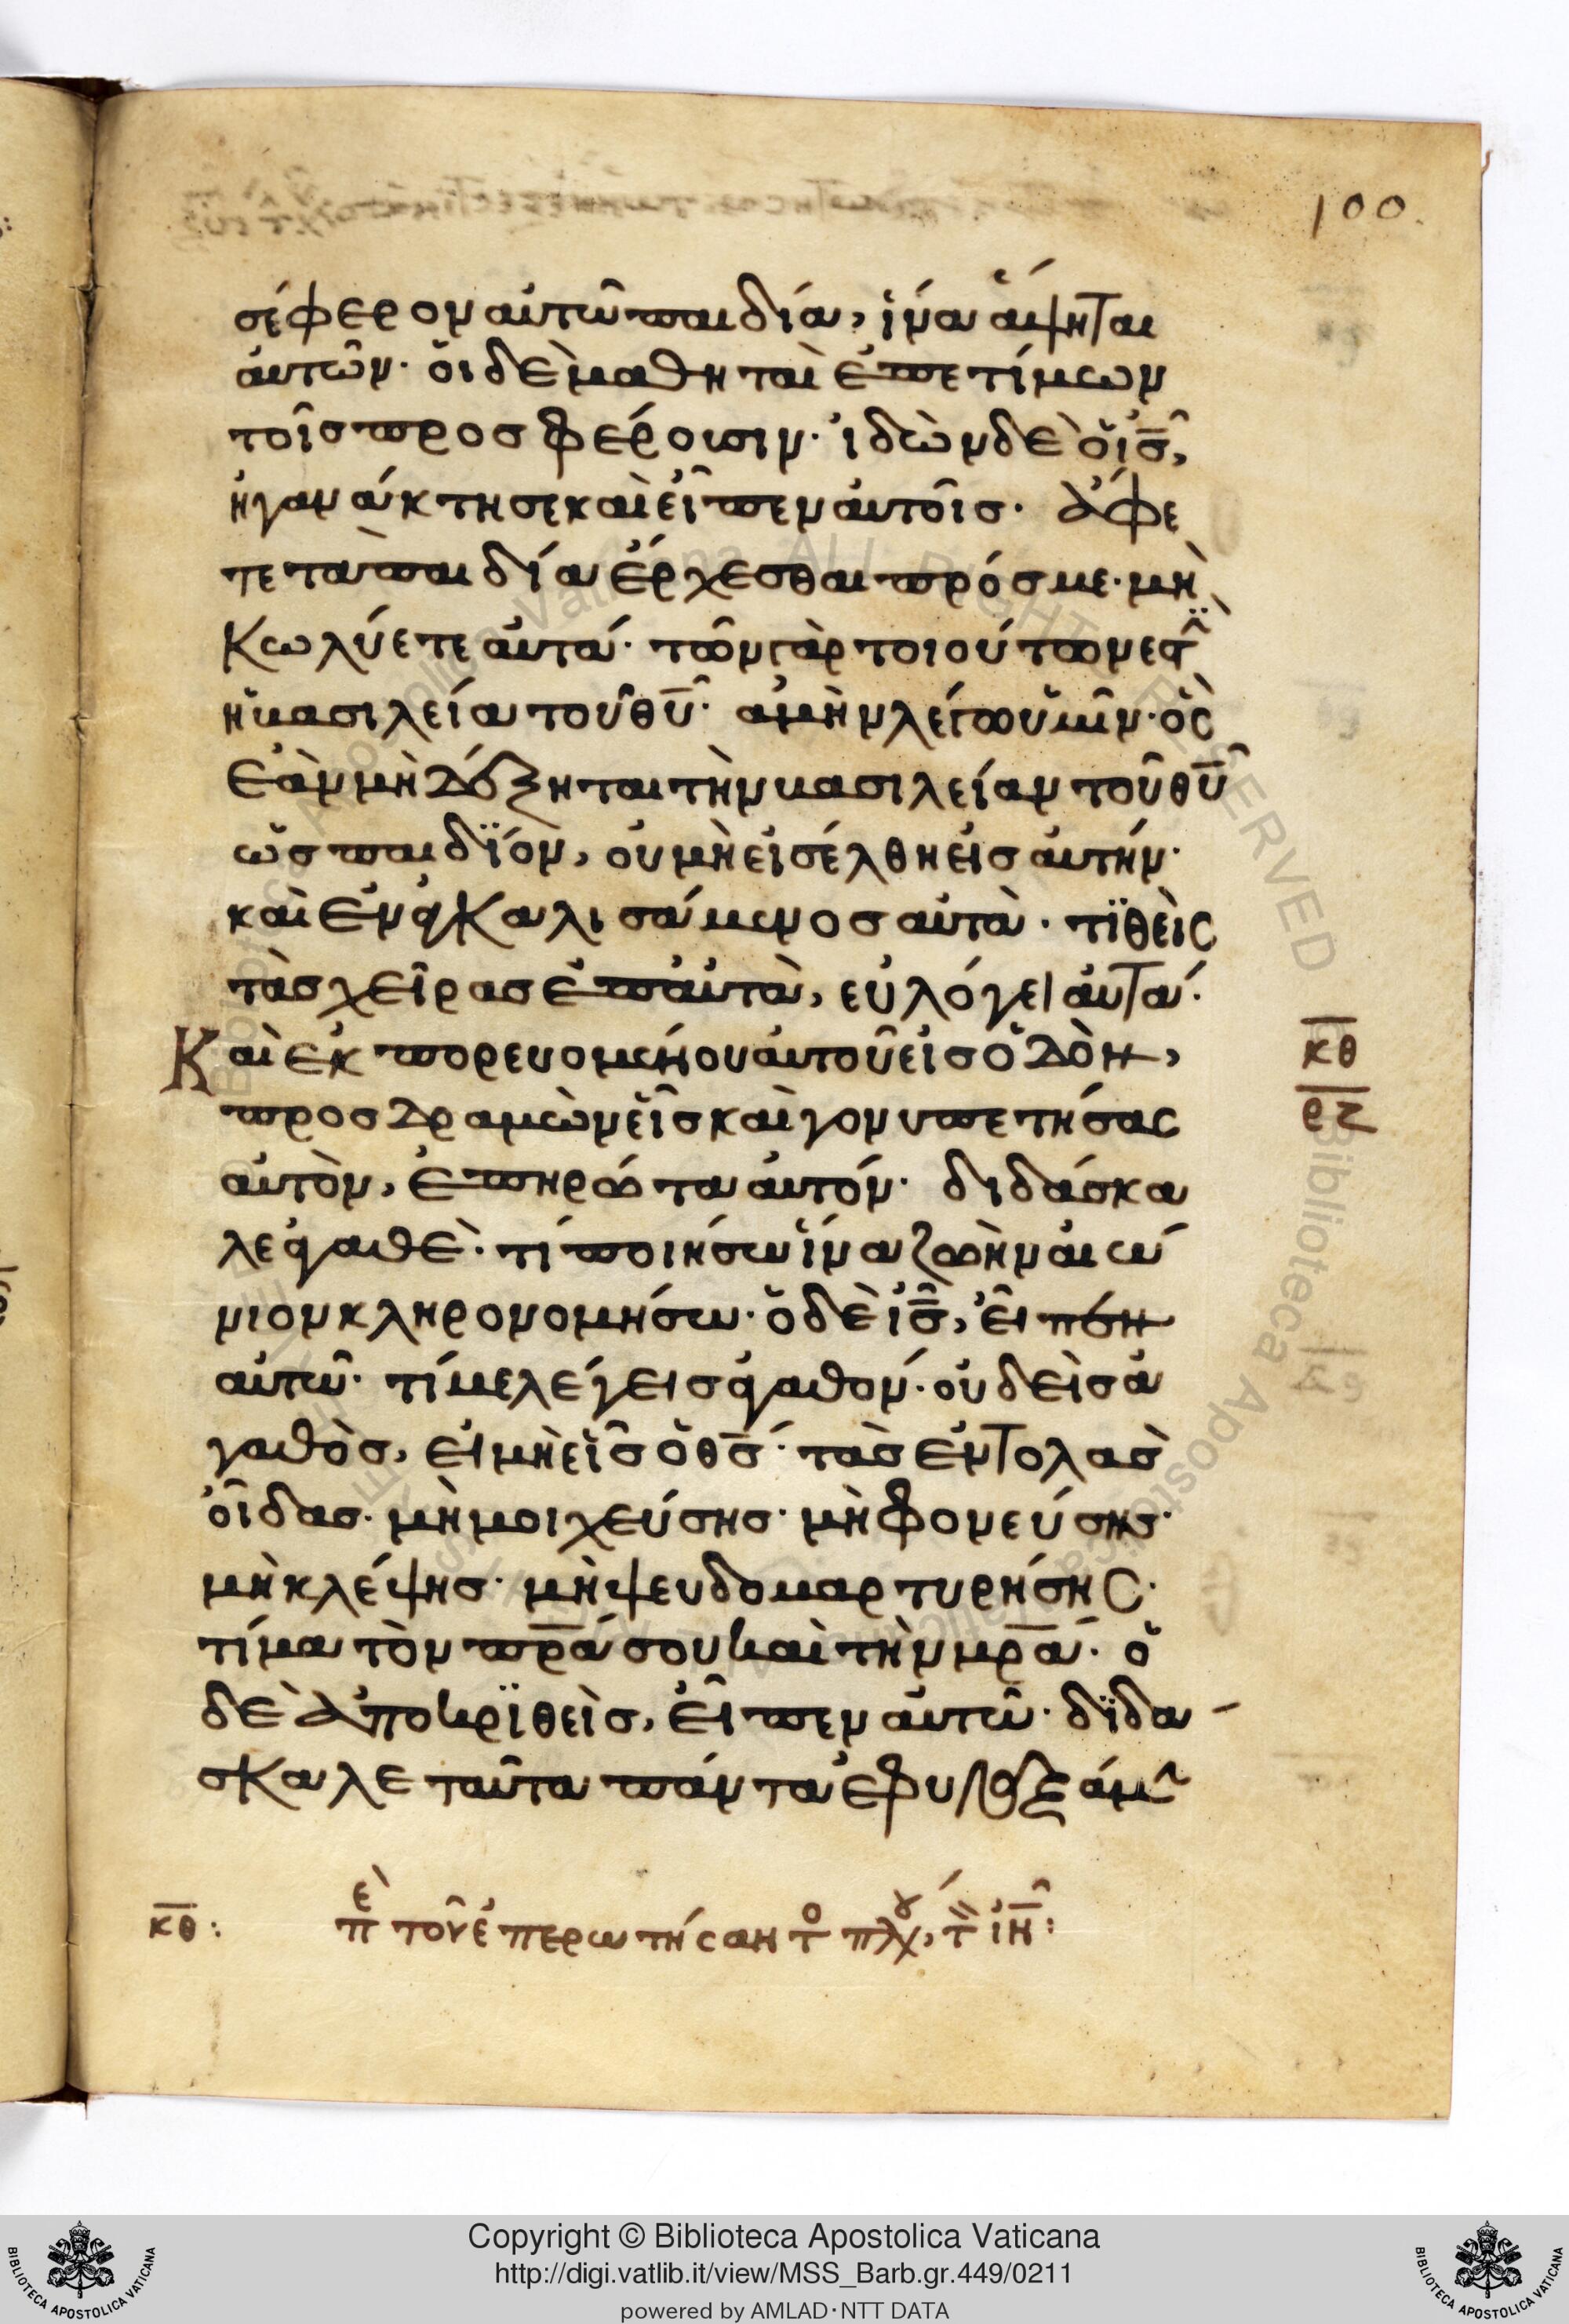 100.
σέφερον αὐτῶ παιδία, ἵνα ἅψηται
αὐτῶν· οἱ δὲ μαθηταὶ ἐπετίμων
τοῖς προσφέρουσιν· ἰδὼν δὲ ὁ ις̅,
ἠγανάκτησε καὶ εἶπεν αὐτοῖς· ἄφε
τε τὰ παιδία ἔρχεσθαι πρός με· μὴ
κωλύετε αὐτά· τῶν γὰρ τοιούτων ἐστ
ἡ βασιλεία τοῦ θυ̅· ἀμὴν λέγω ὑμῖν· ὃς
ἐὰν μὴ δέξηται τὴν βασιλείαν τοῦ θυ̅
ὡς παιδΐον, οὐ μὴ εἰσέλθη εἰς αὐτήν·
καὶ ἐναγκαλισάμενος αὐτὰ· τϊθεὶς
τὰς χεῖρας ἐπ' αὐτὰ, εὐλόγει αὐτά·
Καὶ ἐκπορευομένου αὐτοῦ εἰς ὁδὸν,
κθ̅
προσδραμὼν εἷς καὶ γονυπετήσας
ρζ̅
αὐτὸν, ἐπηρώτα αὐτόν· διδάσκα
λε ἀγαθὲ· τί ποιήσω ἵνα ζωὴν αἰώ
νιον κληρονομήσω· ὁ δὲ ις̅, εἶπεν
αὐτῶ· τί με λέγεις ἀγαθον· οὐδεὶς ἀ
γαθὸς, εἰ μὴ εἷς ὁ θς̅· τὰς ἐντολὰς
οἶδας· μὴ μοιχεύσης· μὴ φονεύσης·
μὴ κλέψης· μὴ ψευδομαρτυρήσης·
τίμα τὸν πρ̅α σου καὶ τὴν μρ̅α· ὁ
δὲ ἀποκρϊθεὶς, εἶπεν αὐτῶ· δϊδα
σκαλε ταῦτα πάντα ἐφυλαξάμ
κθ̅: π τοῦ ἐπερωτήσαντ πλου, τ ιν̅:
Copyright © Biblioteca Apostolica Vaticana
http://digi.vatlib.it/view/MSS_Barb.gr.449/0211
powered by AMLAD·NTT DATA
BIBLIOTECA APOSTOLICA VATICANA
BIBLIOTECA APOSTOLICA VATICANA